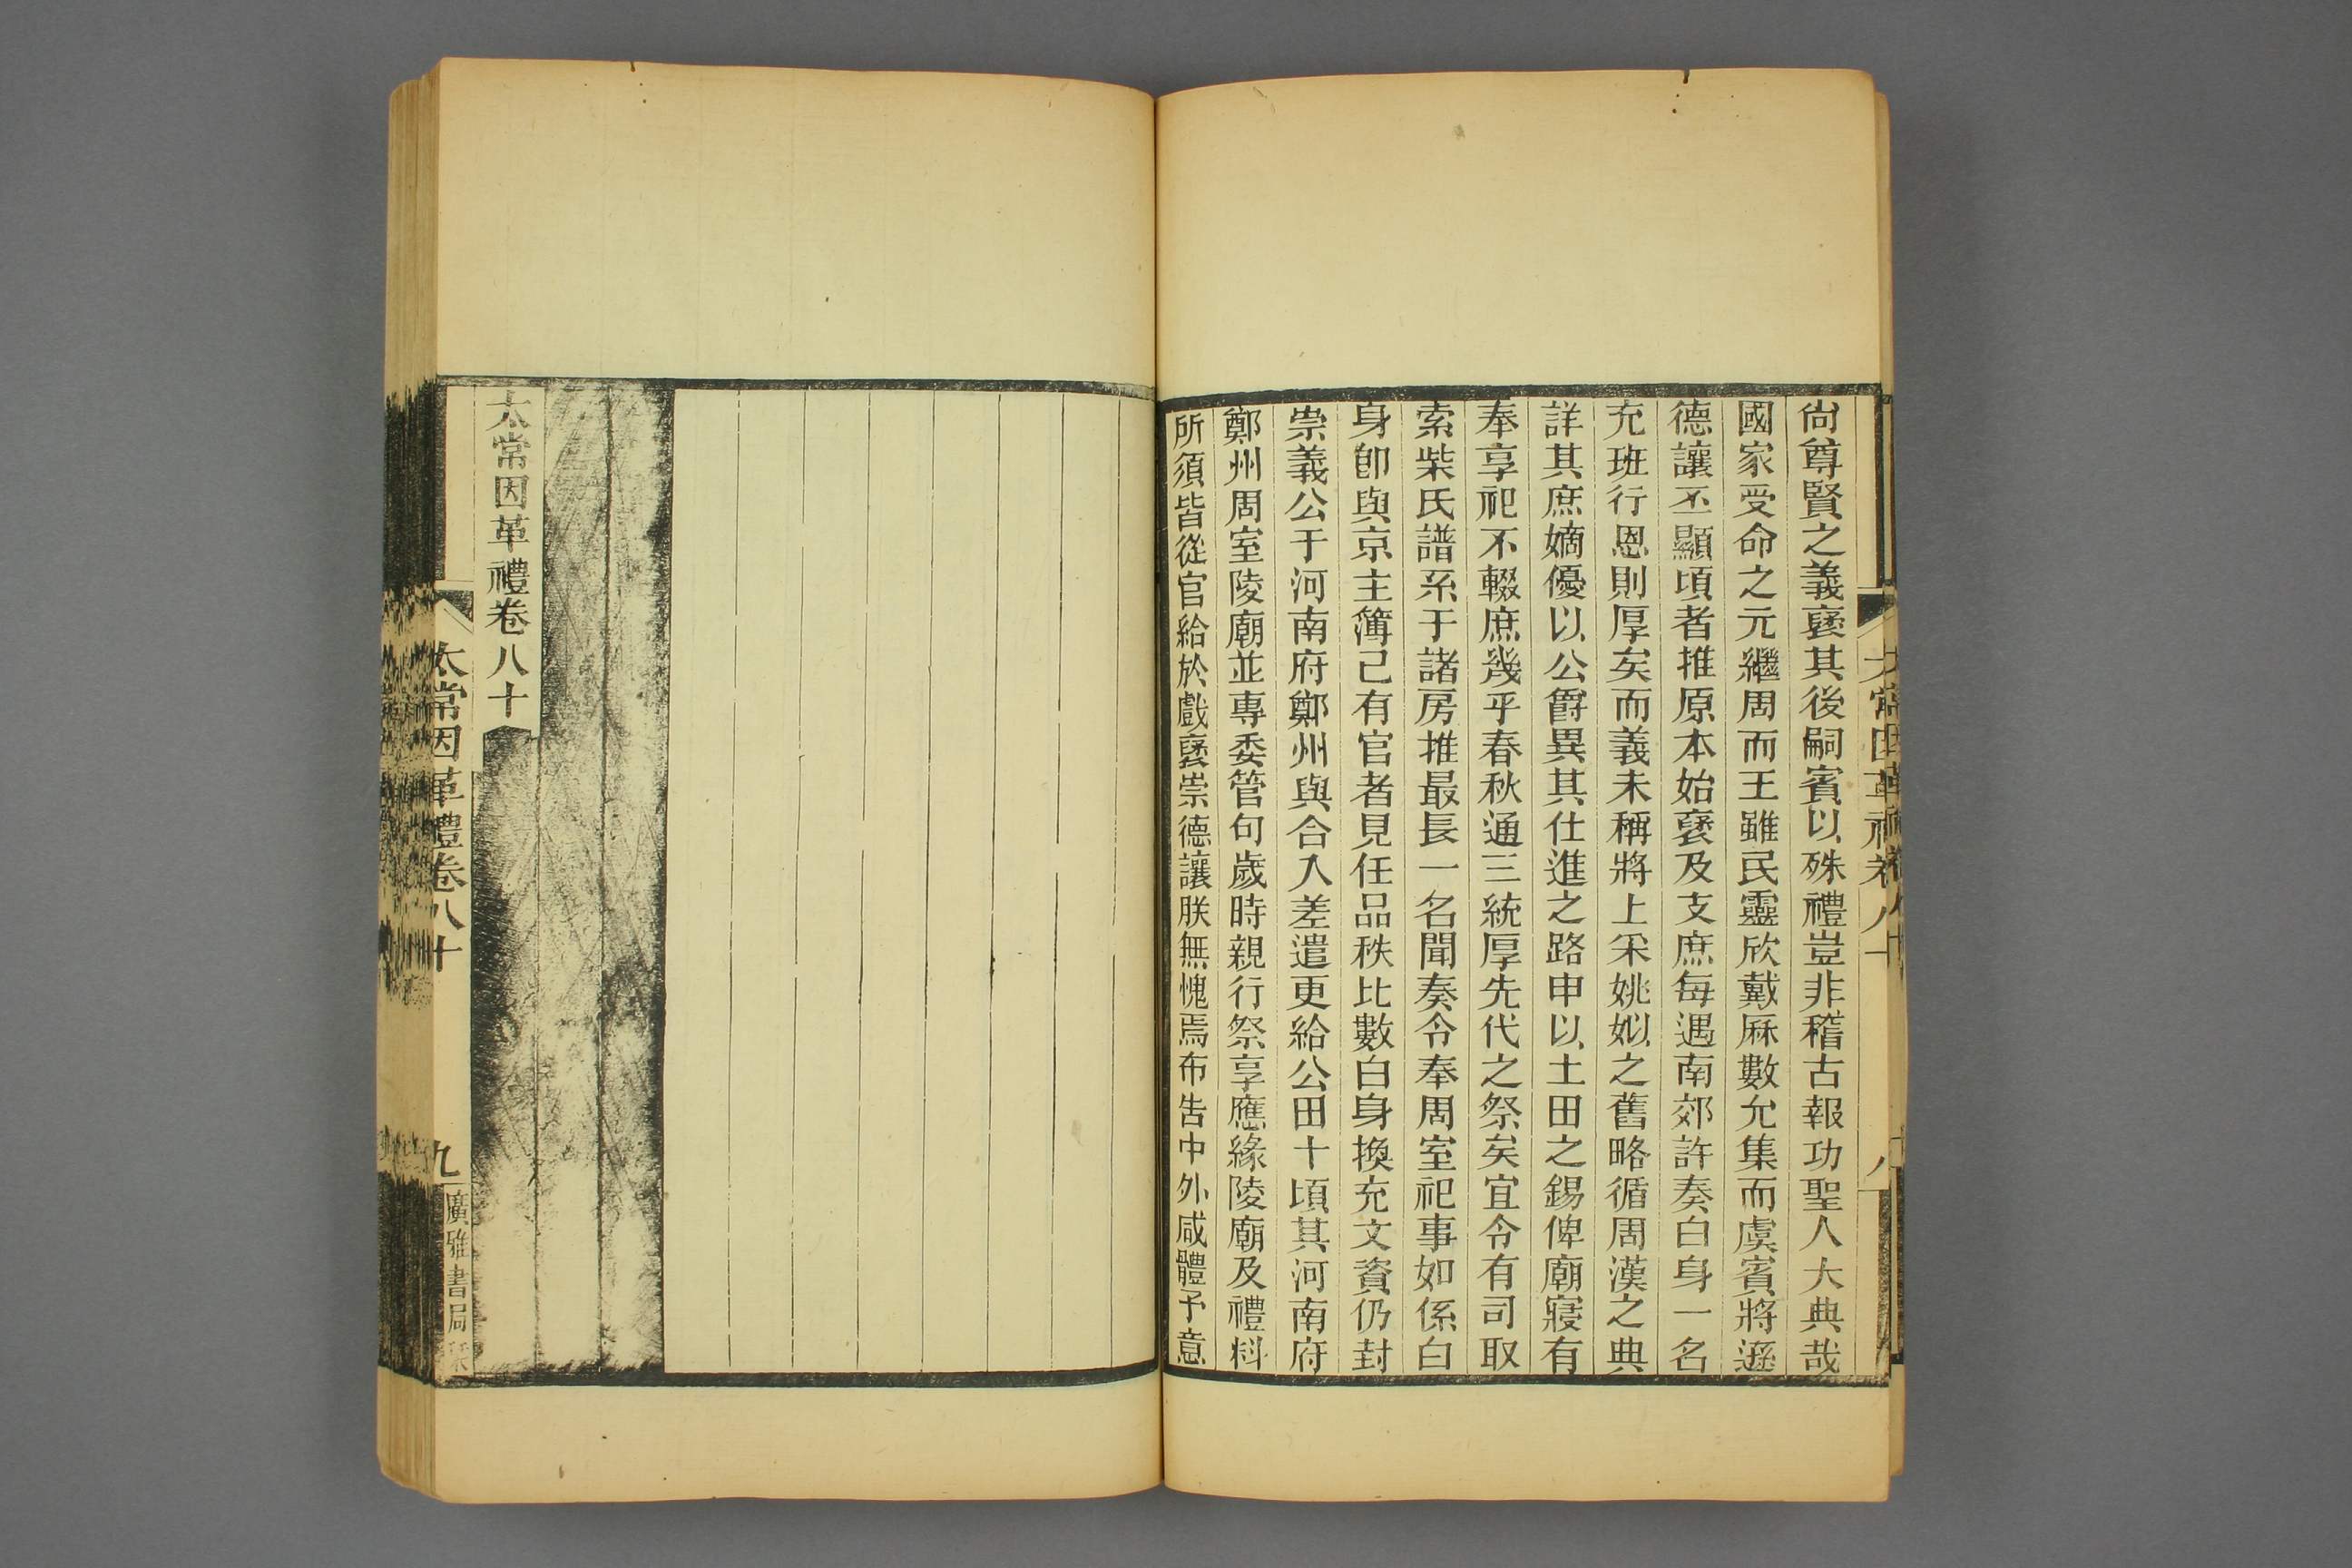 尙尊賢之義襃其後嗣賓以殊禮豈非稽古報功聖人大典哉
國家受命之元繼周而王雖民靈欣戴厤數允集而虞賓將遜
德讓丕顯頃者推原本始襃及支庶每遇南郊許奏白身一名
充班行恩則厚矣而義未稱將上采姚姒之舊略循周漢之典
詳其庶嫡優以公爵異其仕進之路申以土田之錫俾廟寢有
奉享祀不輟庶幾乎春秋通三統厚先代之祭矣宜令有司取
索柴氏譜系于諸房推最長一名聞奏令奉周室祀事如係白
身卽與京主簿己有官者見任品秩比數白身換充文資仍封
崇義公于河南府鄭州與合入差遣更給公田十頃其河南府
鄭州周室陵廟並專委管句歲時親行祭享應緣陵廟及禮料
所須皆從官給於戲襃崇德讓朕無愧焉布告中外咸體予意
太常因革禮卷八十
太常因革禮卷八十
九
廣雅書局